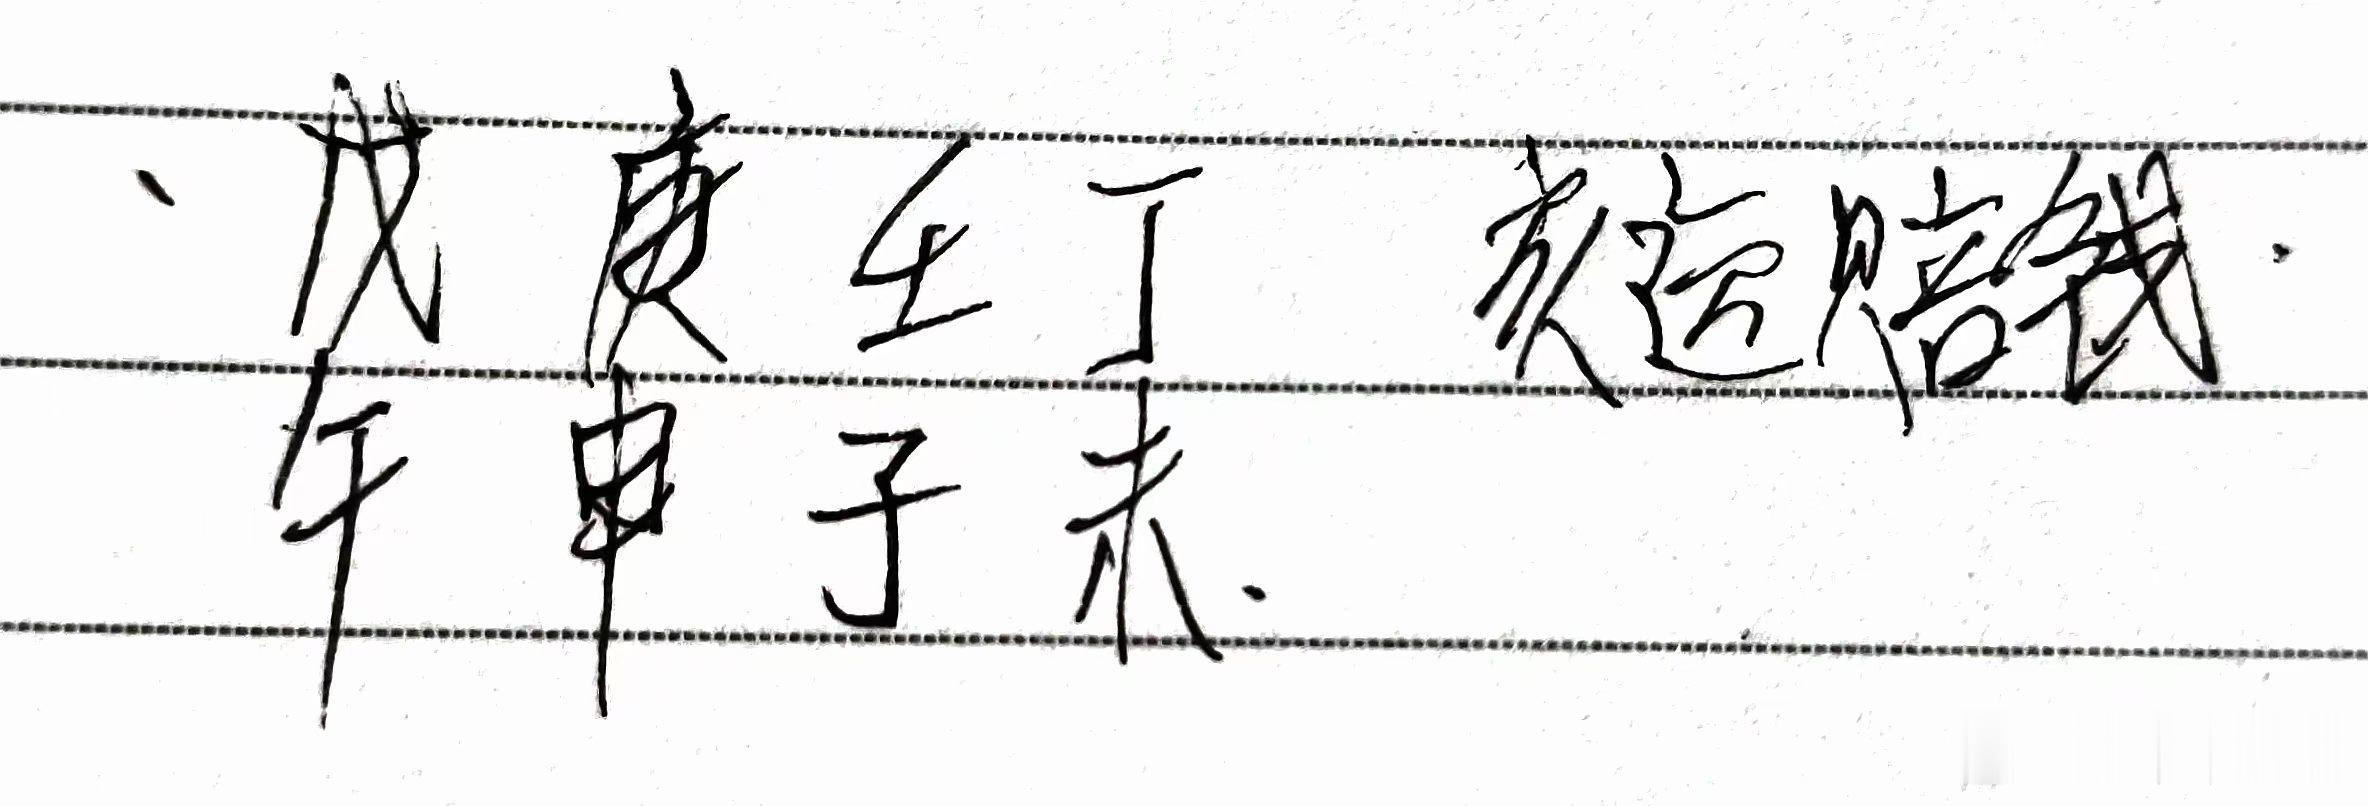 、戊 庚 壬 丁 亥运赔钱.
午 申 子 未.